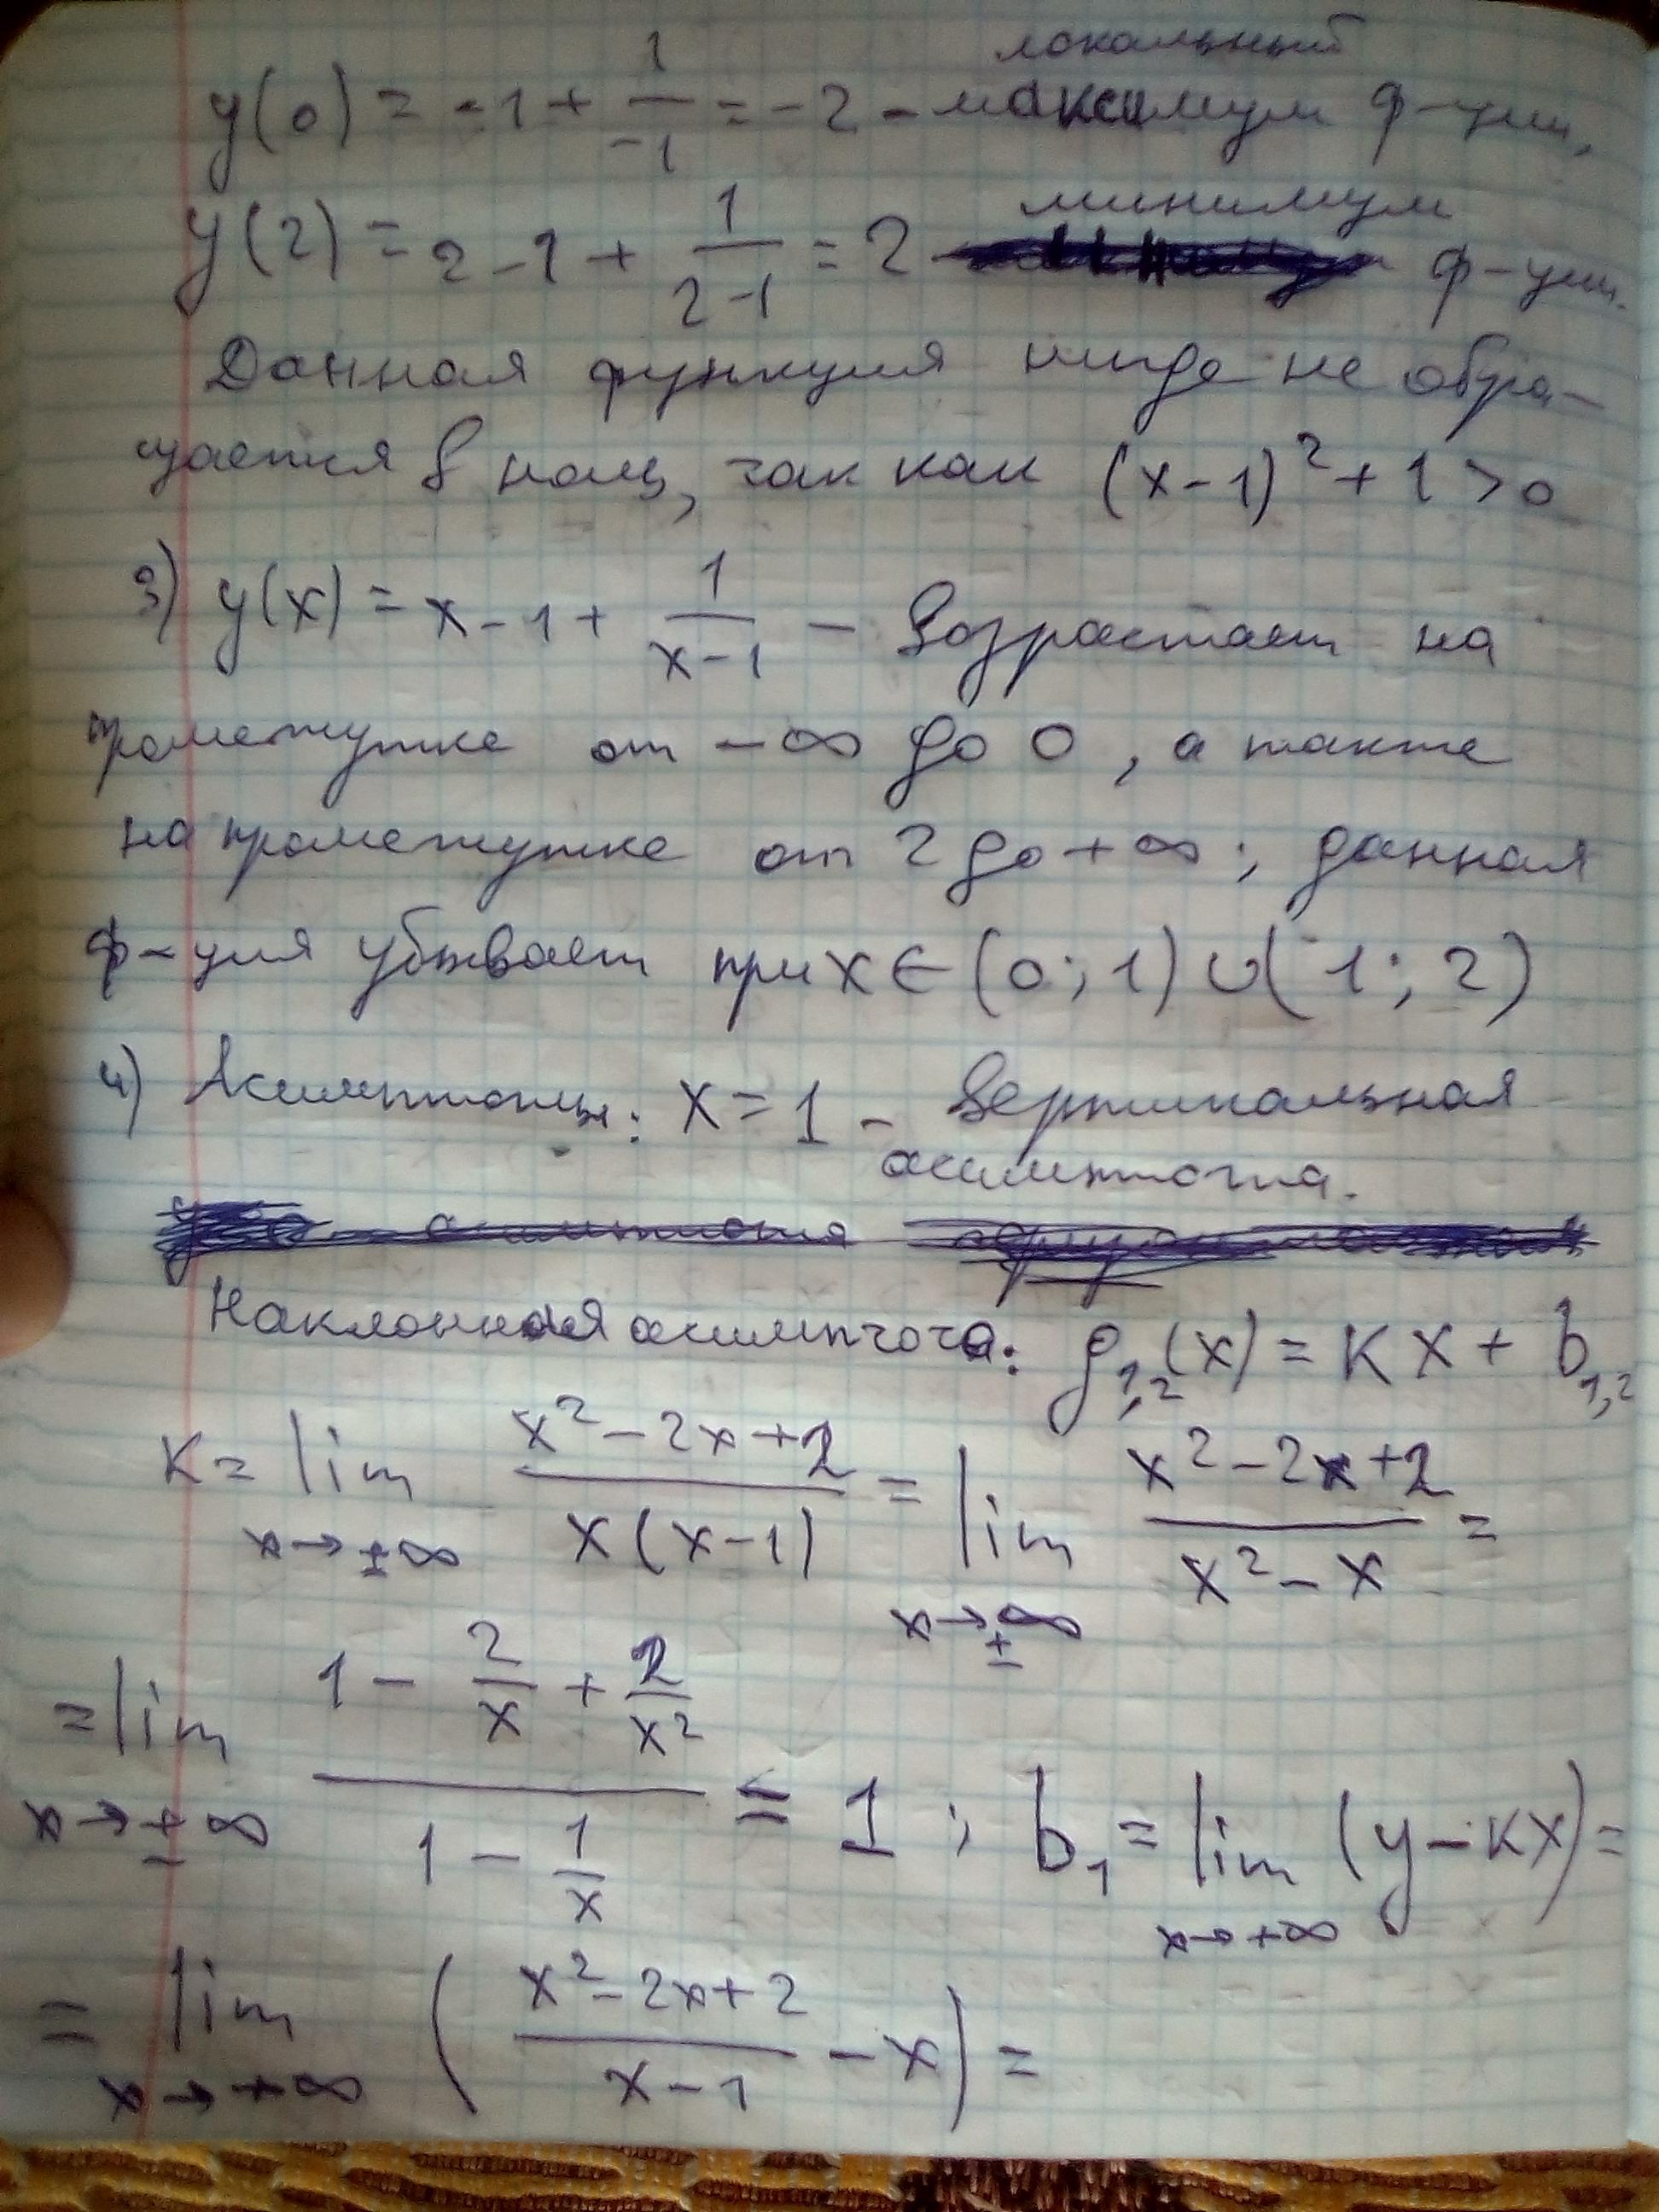 локальный
y(0) = -1 + 1/-1 = -2 - максимум ф-ции,
минимум
y(2) = 2 - 1 + 1/(2-1) = 2 - ф-ции.
Данная функция нигде не обра-
щается в ноль, так как (x-1)² + 1 > 0
3) y(x) = x - 1 + 1/(x-1) - возрастает на
промежутке от -∞ до 0, а также
на промежутке от 2 до +∞; данная
ф-ция убывает при x ∈ (0; 1) ∪ (1; 2)
4) Асимптоты: x = 1 - вертикальная
асимптота.
Наклонная асимптота: g₁,₂(x) = Kx + b₁,₂
K = lim x→±∞ (x²-2x+2)/(x(x-1)) = lim x→±∞ (x²-2x+2)/(x²-x) =
= lim x→±∞ (1 - 2/x + 2/x²)/(1 - 1/x) = 1; b₁ = lim x→+∞ (y-Kx) =
= lim x→+∞ ((x²-2x+2)/(x-1) - x) =